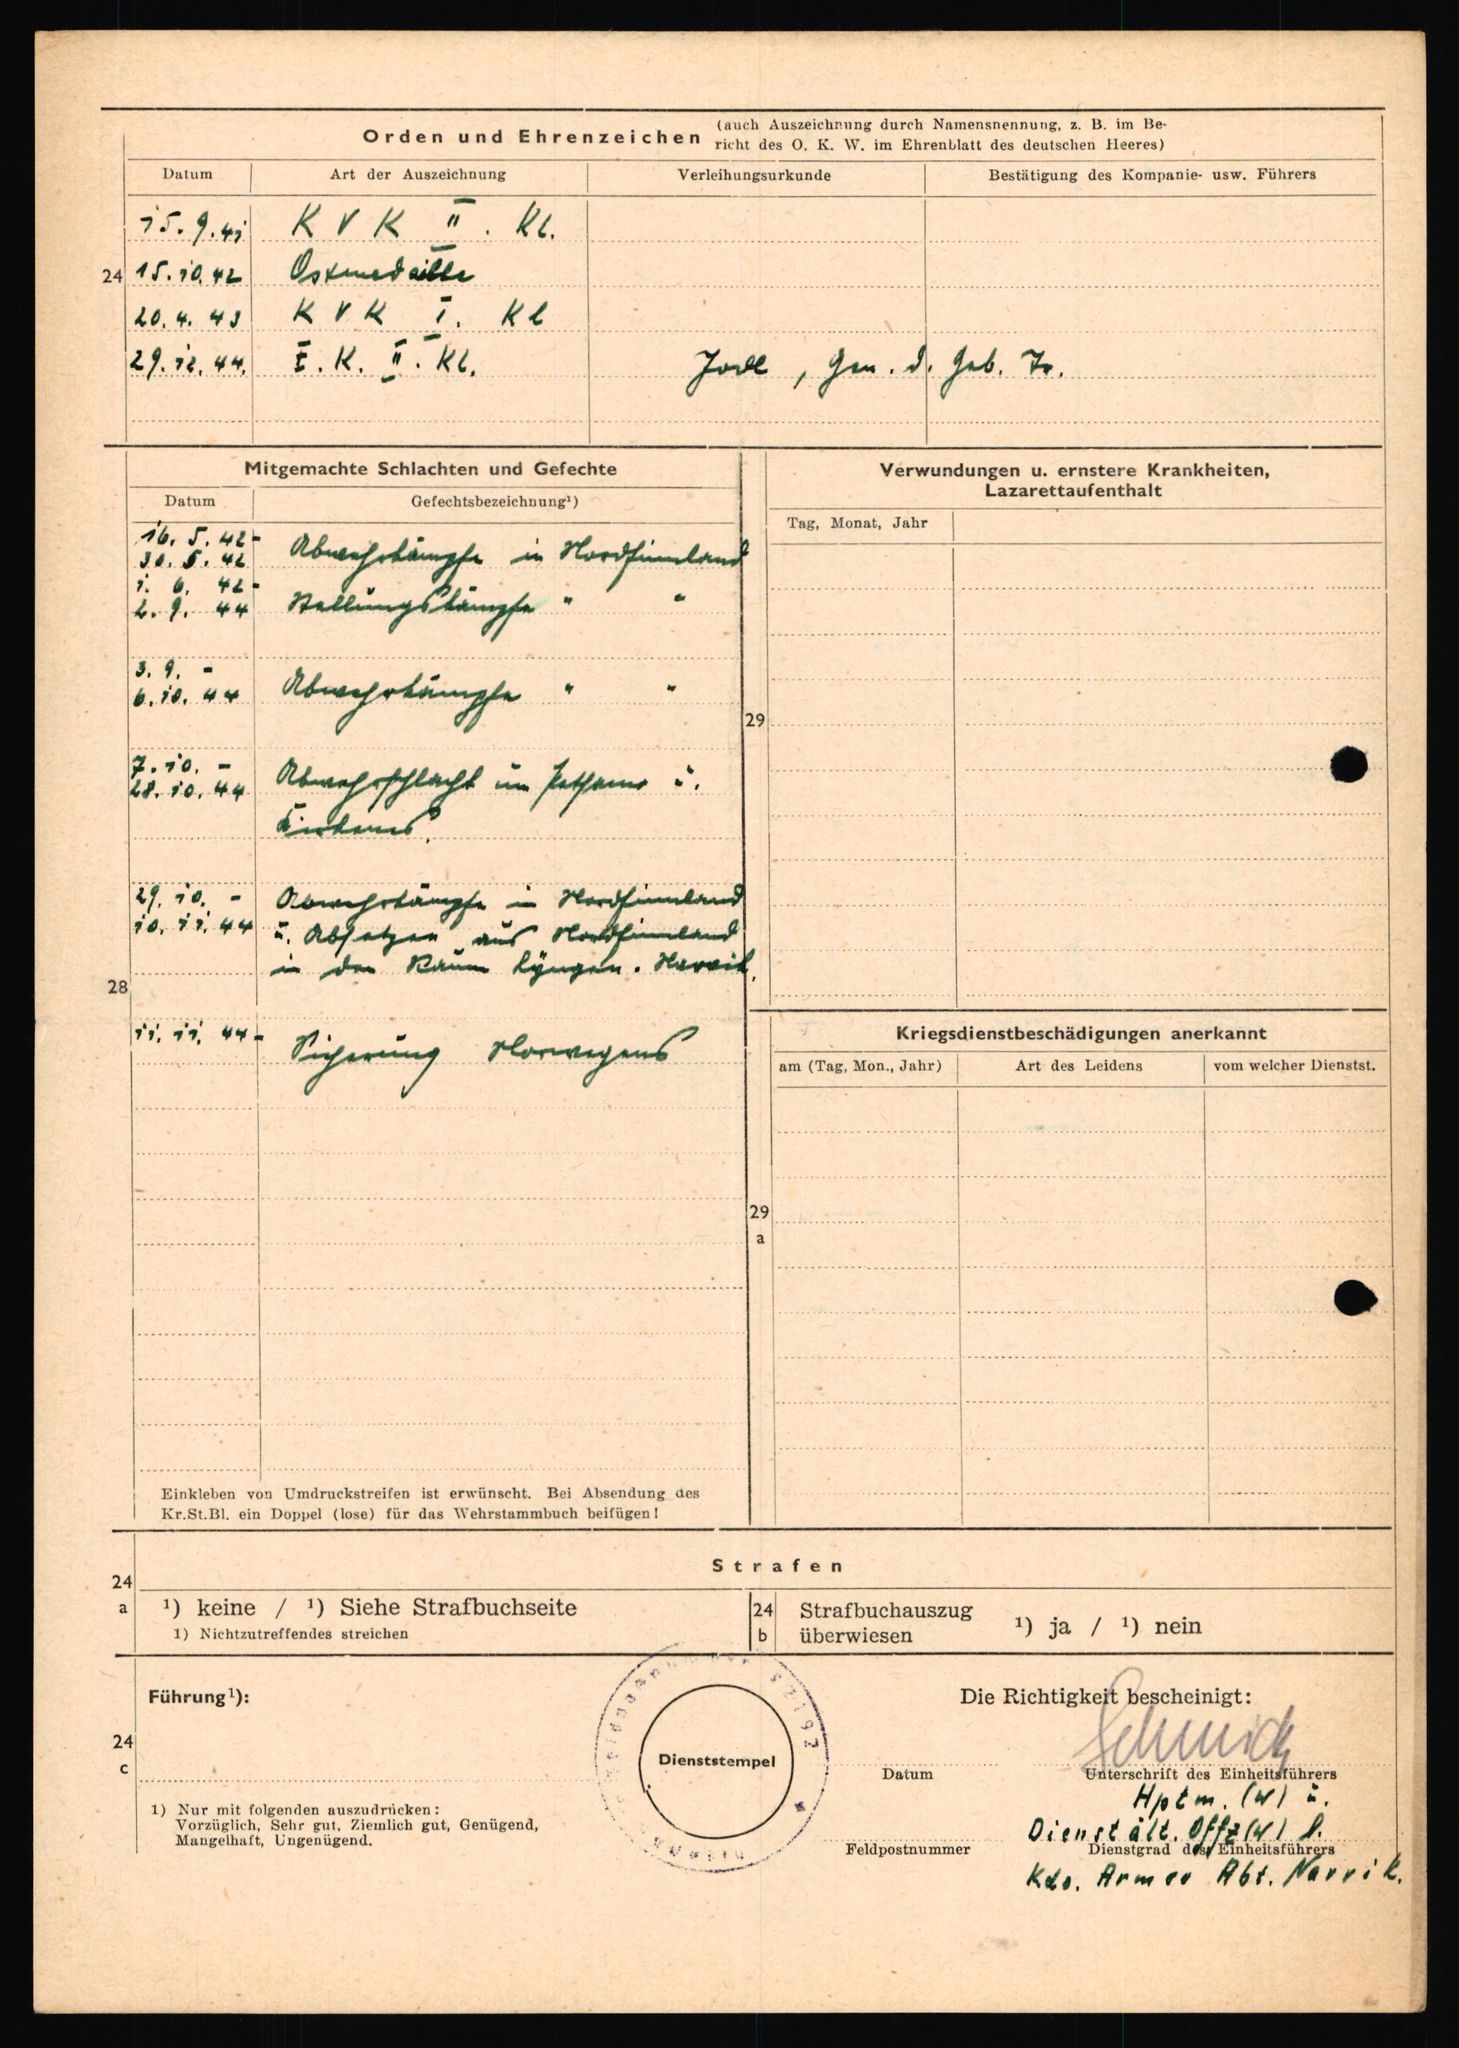 Orden und Ehrenzeichen (auch Auszeichnung durch Namensnennung, z. B. im Be-
richt des O. K. W. im Ehrenblatt des deutschen Heeres)
Datum Art der Auszeichnung Verleihungsurkunde Bestätigung des Kompanie- usw. Führers
15. 9. 41 K V K II. Kl.
24 15. 10. 42 Ostmedaille
20. 4. 43 K V K I. Kl
29. 12. 44. E. K. II. Kl. Jodl, Gen. d. Geb. Tr.
Mitgemachte Schlachten und Gefechte
Datum Gefechtsbezeichnung¹)
16. 5. 42-
30. 5. 42 Abwehrkämpfe in Nordfinnland
1. 6. 42-
2. 9. 44 Stellungskämpfe " "
3. 9. -
6. 10. 44 Abwehrkämpfe " "
7. 10. -
28. 10. 44 Abwehrschlacht um Petsamo u.
Kirkenes.
29. 10. - Abwehrkämpfe in Nordfinnland
10. 11. 44 u. Absetzen aus Nordfinnland
in den Raum Lyngen. Narvik.
28
11. 11. 44- Sicherung Norwegens
Einkleben von Umdruckstreifen ist erwünscht. Bei Absendung des
Kr.St.Bl. ein Doppel (lose) für das Wehrstammbuch beifügen!
Verwundungen u. ernstere Krankheiten,
Lazarettaufenthalt
Tag, Monat, Jahr
29
Kriegsdienstbeschädigungen anerkannt
am (Tag, Mon., Jahr) Art des Leidens vom welcher Dienstst.
29
a
Strafen
24
a ¹) keine / ¹) Siehe Strafbuchseite
1) Nichtzutreffendes streichen
24
b Strafbuchauszug
überwiesen ¹) ja / ¹) nein
Führung¹):
24
c
1) Nur mit folgenden auszudrücken:
Vorzüglich, Sehr gut, Ziemlich gut, Genügend,
Mangelhaft, Ungenügend.
Dienststempel
Die Richtigkeit bescheinigt:
Datum Unterschrift des Einheitsführers
Hptm. (W) u.
Dienstält. Offz (W) b.
Feldpostnummer Dienstgrad des Einheitsführers
Kdo. Armee Abt. Narvik.